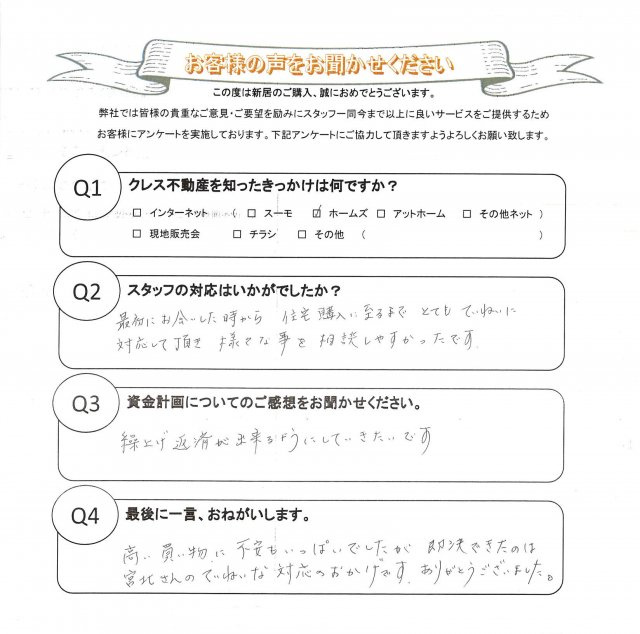 お客様の声をお聞かせください
この度は新居のご購入、誠におめでとうございます。
弊社では皆様の貴重なご意見・ご要望を励みにスタッフ一同今まで以上に良いサービスをご提供するため
お客様にアンケートを実施しております。下記アンケートにご協力して頂きますようよろしくお願い致します。
Q1 クレス不動産を知ったきっかけは何ですか？
□ インターネット （ □ スーモ ☑ ホームズ □ アットホーム □ その他ネット ）
□ 現地販売会 □ チラシ □ その他 （ ）
Q2 スタッフの対応はいかがでしたか？
最初にお会いした時から 住宅購入に至るまで とても ていねいに
対応して頂き 様々な事を 相談しやすかったです
Q3 資金計画についてのご感想をお聞かせください。
繰上げ返済が出来るようにしていきたいです
Q4 最後に一言、おねがいします。
高い買い物に 不安もいっぱいでしたが 即決できたのは
宮北さんのていねいな対応のおかげです。ありがとうございました。